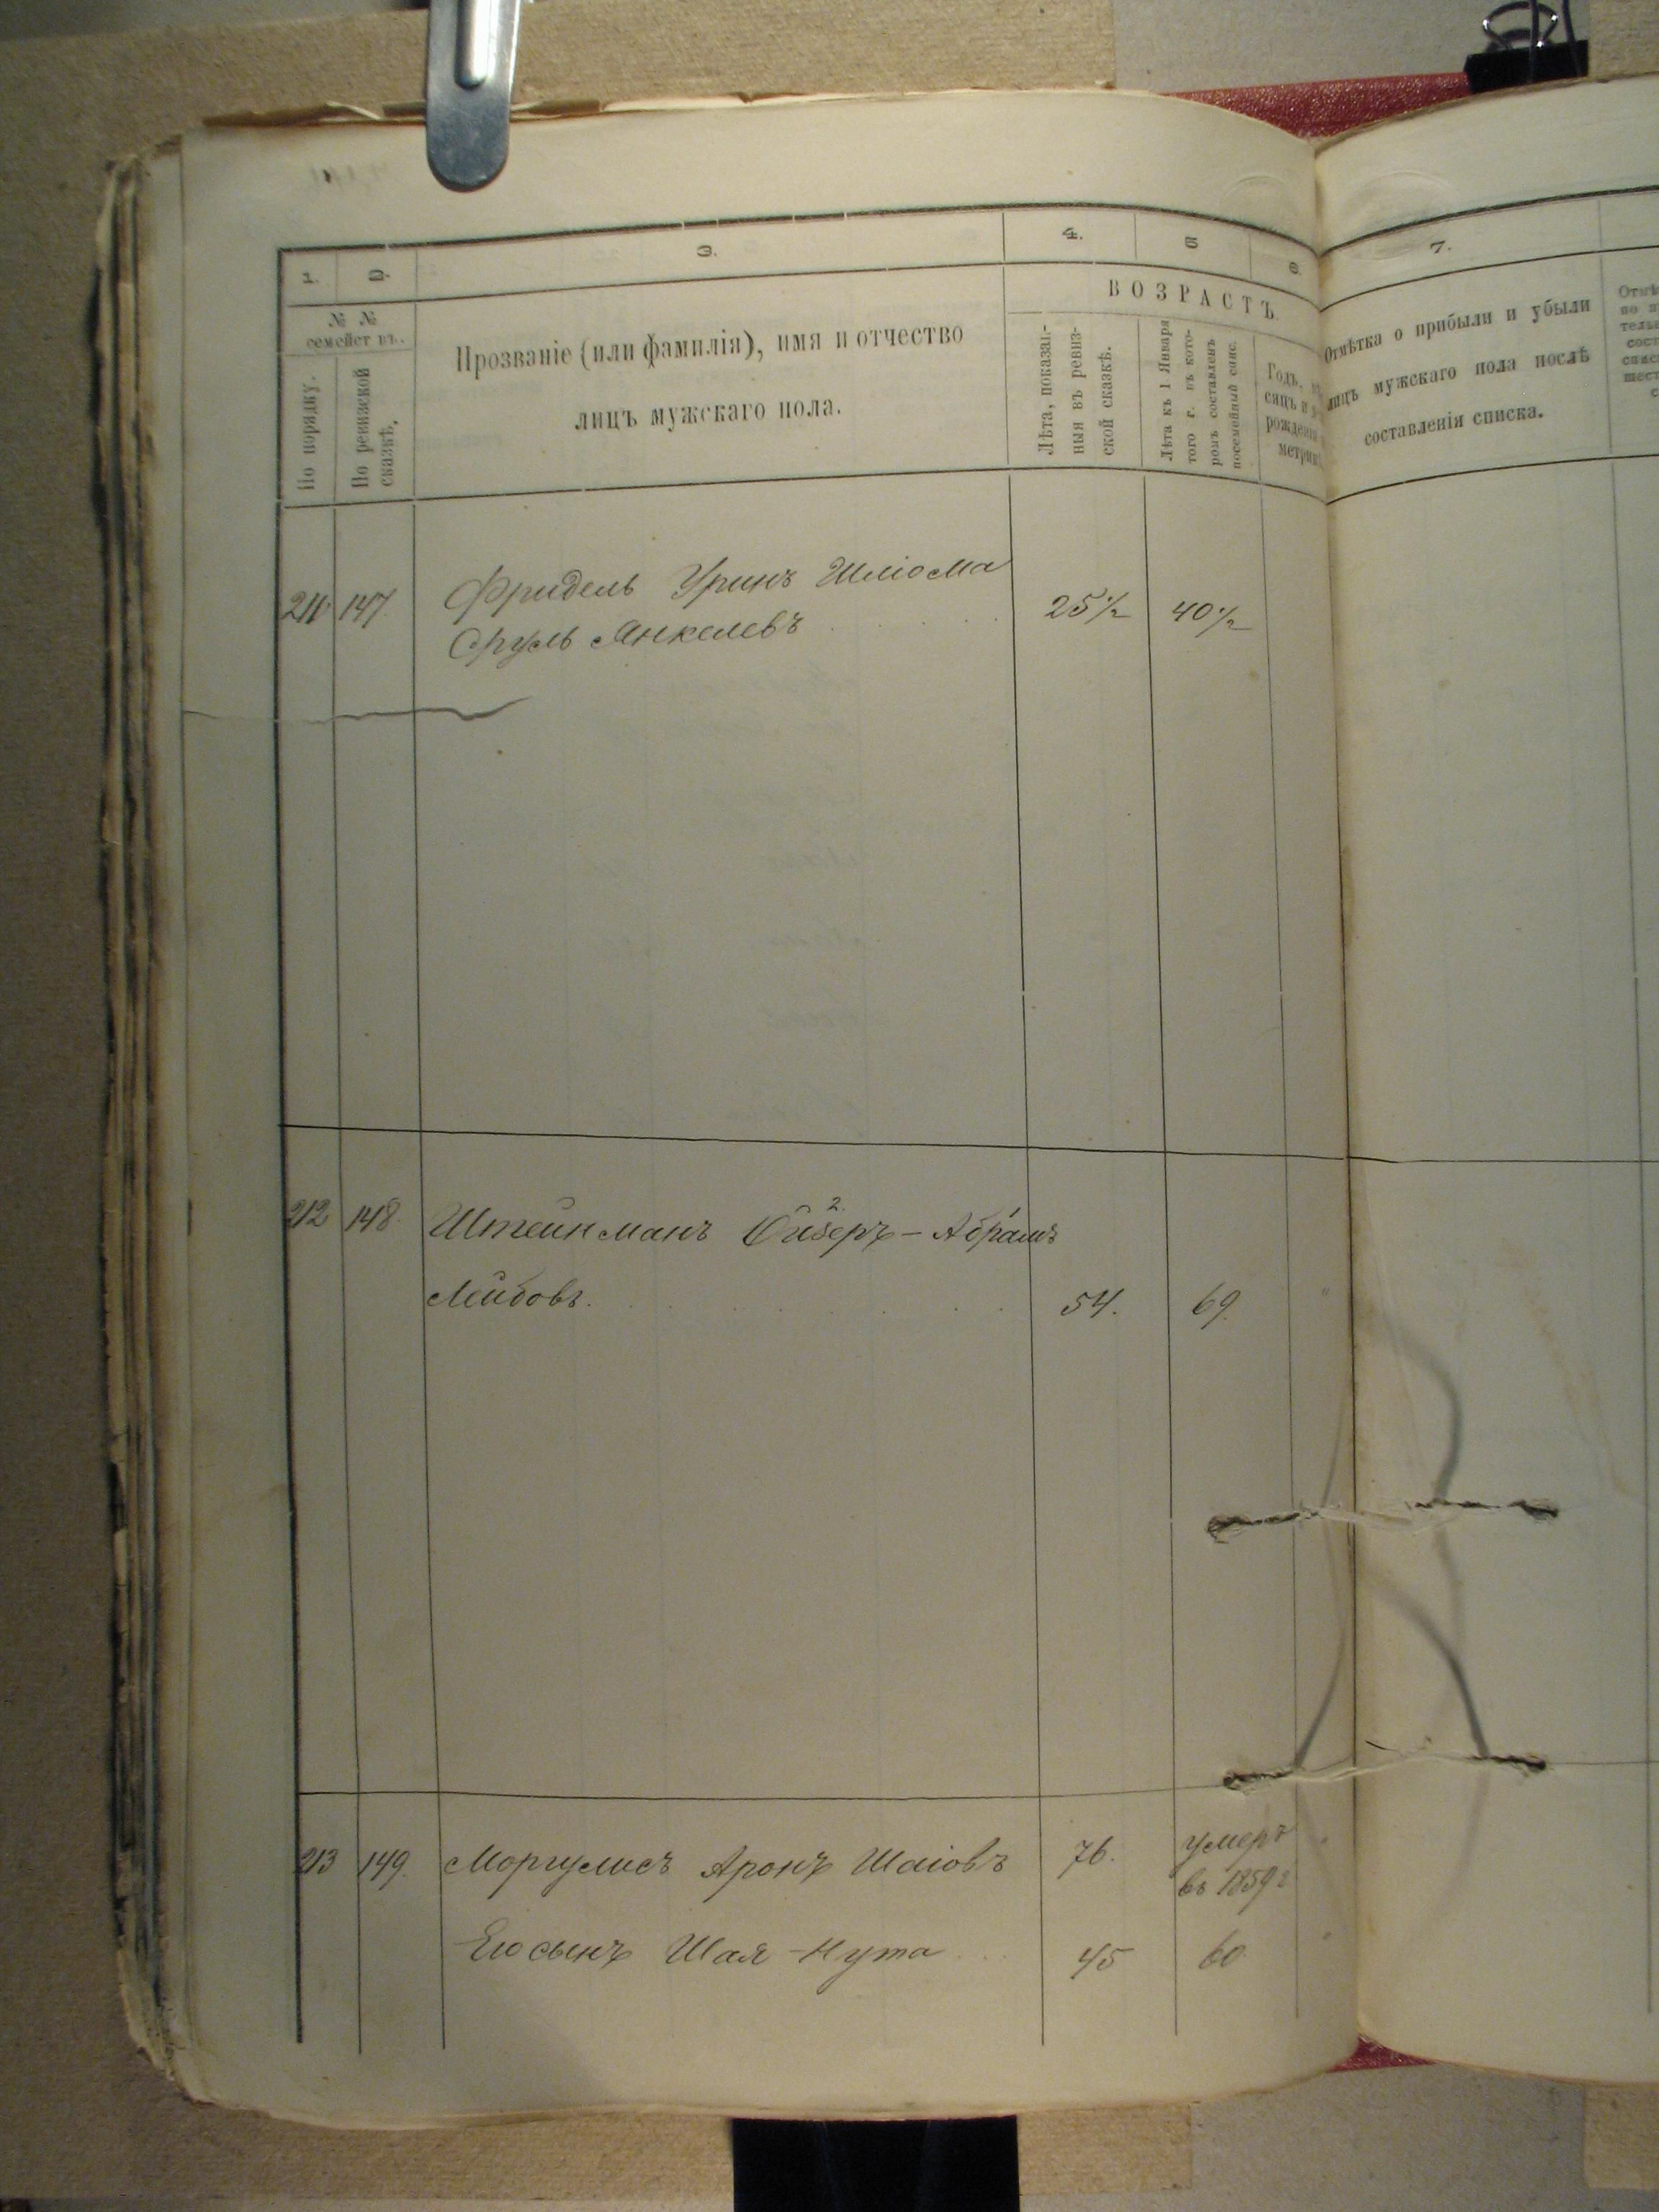 1. 2. 3. 4. 5 6. 7.
№ № семействъ.
По порядку.
По ревизской сказкѣ.
Прозваніе (или фамилія), имя и отчество
лицъ мужскаго пола.
ВОЗРАСТЪ.
Лѣта, показан-
ныя въ ревиз-
ской сказкѣ.
Лѣта къ 1 Января
того г. въ кото-
ромъ составленъ
посемейный спис.
Годъ,
сяцъ и
рожденія
метрик
Отмѣтка о прибыли и убыли
лицъ мужскаго пола послѣ
составленія списка.
211 147. Фридель Уринъ Шліома
Сруль Янкелевъ 25 1/2 40 1/2
212 148. Штейнманъ Ойзеръ - Абрамъ
Лейбовъ. 54. 69.
213 149. Моргулисъ Аронъ Шаіовъ 76. умеръ
въ 1859 г
Его сынъ Шая - Нута 45 60